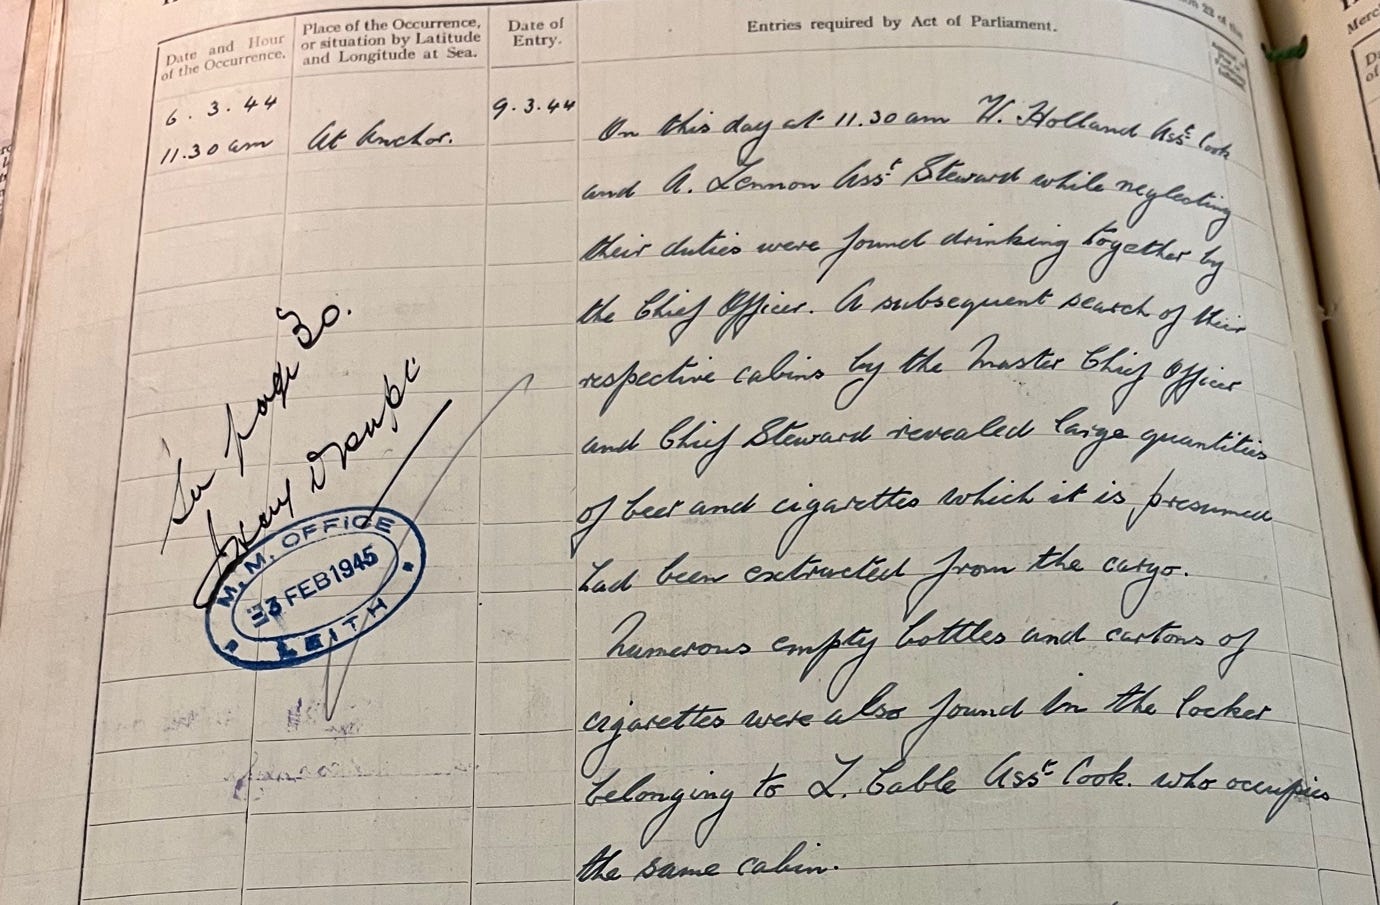 Date and Hour
of the Occurrence.
Place of the Occurrence,
or situation by Latitude
and Longitude at Sea.
Date of
Entry.
Entries required by Act of Parliament.
6. 3. 44
11.30 am
At Anchor.
9.3.44
On this day at 11.30 am W. Holland Asst Cook
and A. Lennon Asst Steward while neglecting
their duties were found drinking together by
the Chief Officer. A subsequent search of their
respective cabins by the Master Chief Officer
and Chief Steward revealed large quantities
of beer and cigarettes which it is presumed
had been extracted from the cargo.
Numerous empty bottles and cartons of
cigarettes were also found in the locker
belonging to L. Cable Asst Cook. who occupies
the same cabin.
See page 30.
M.M. OFFICE
3 FEB 1945
LEITH